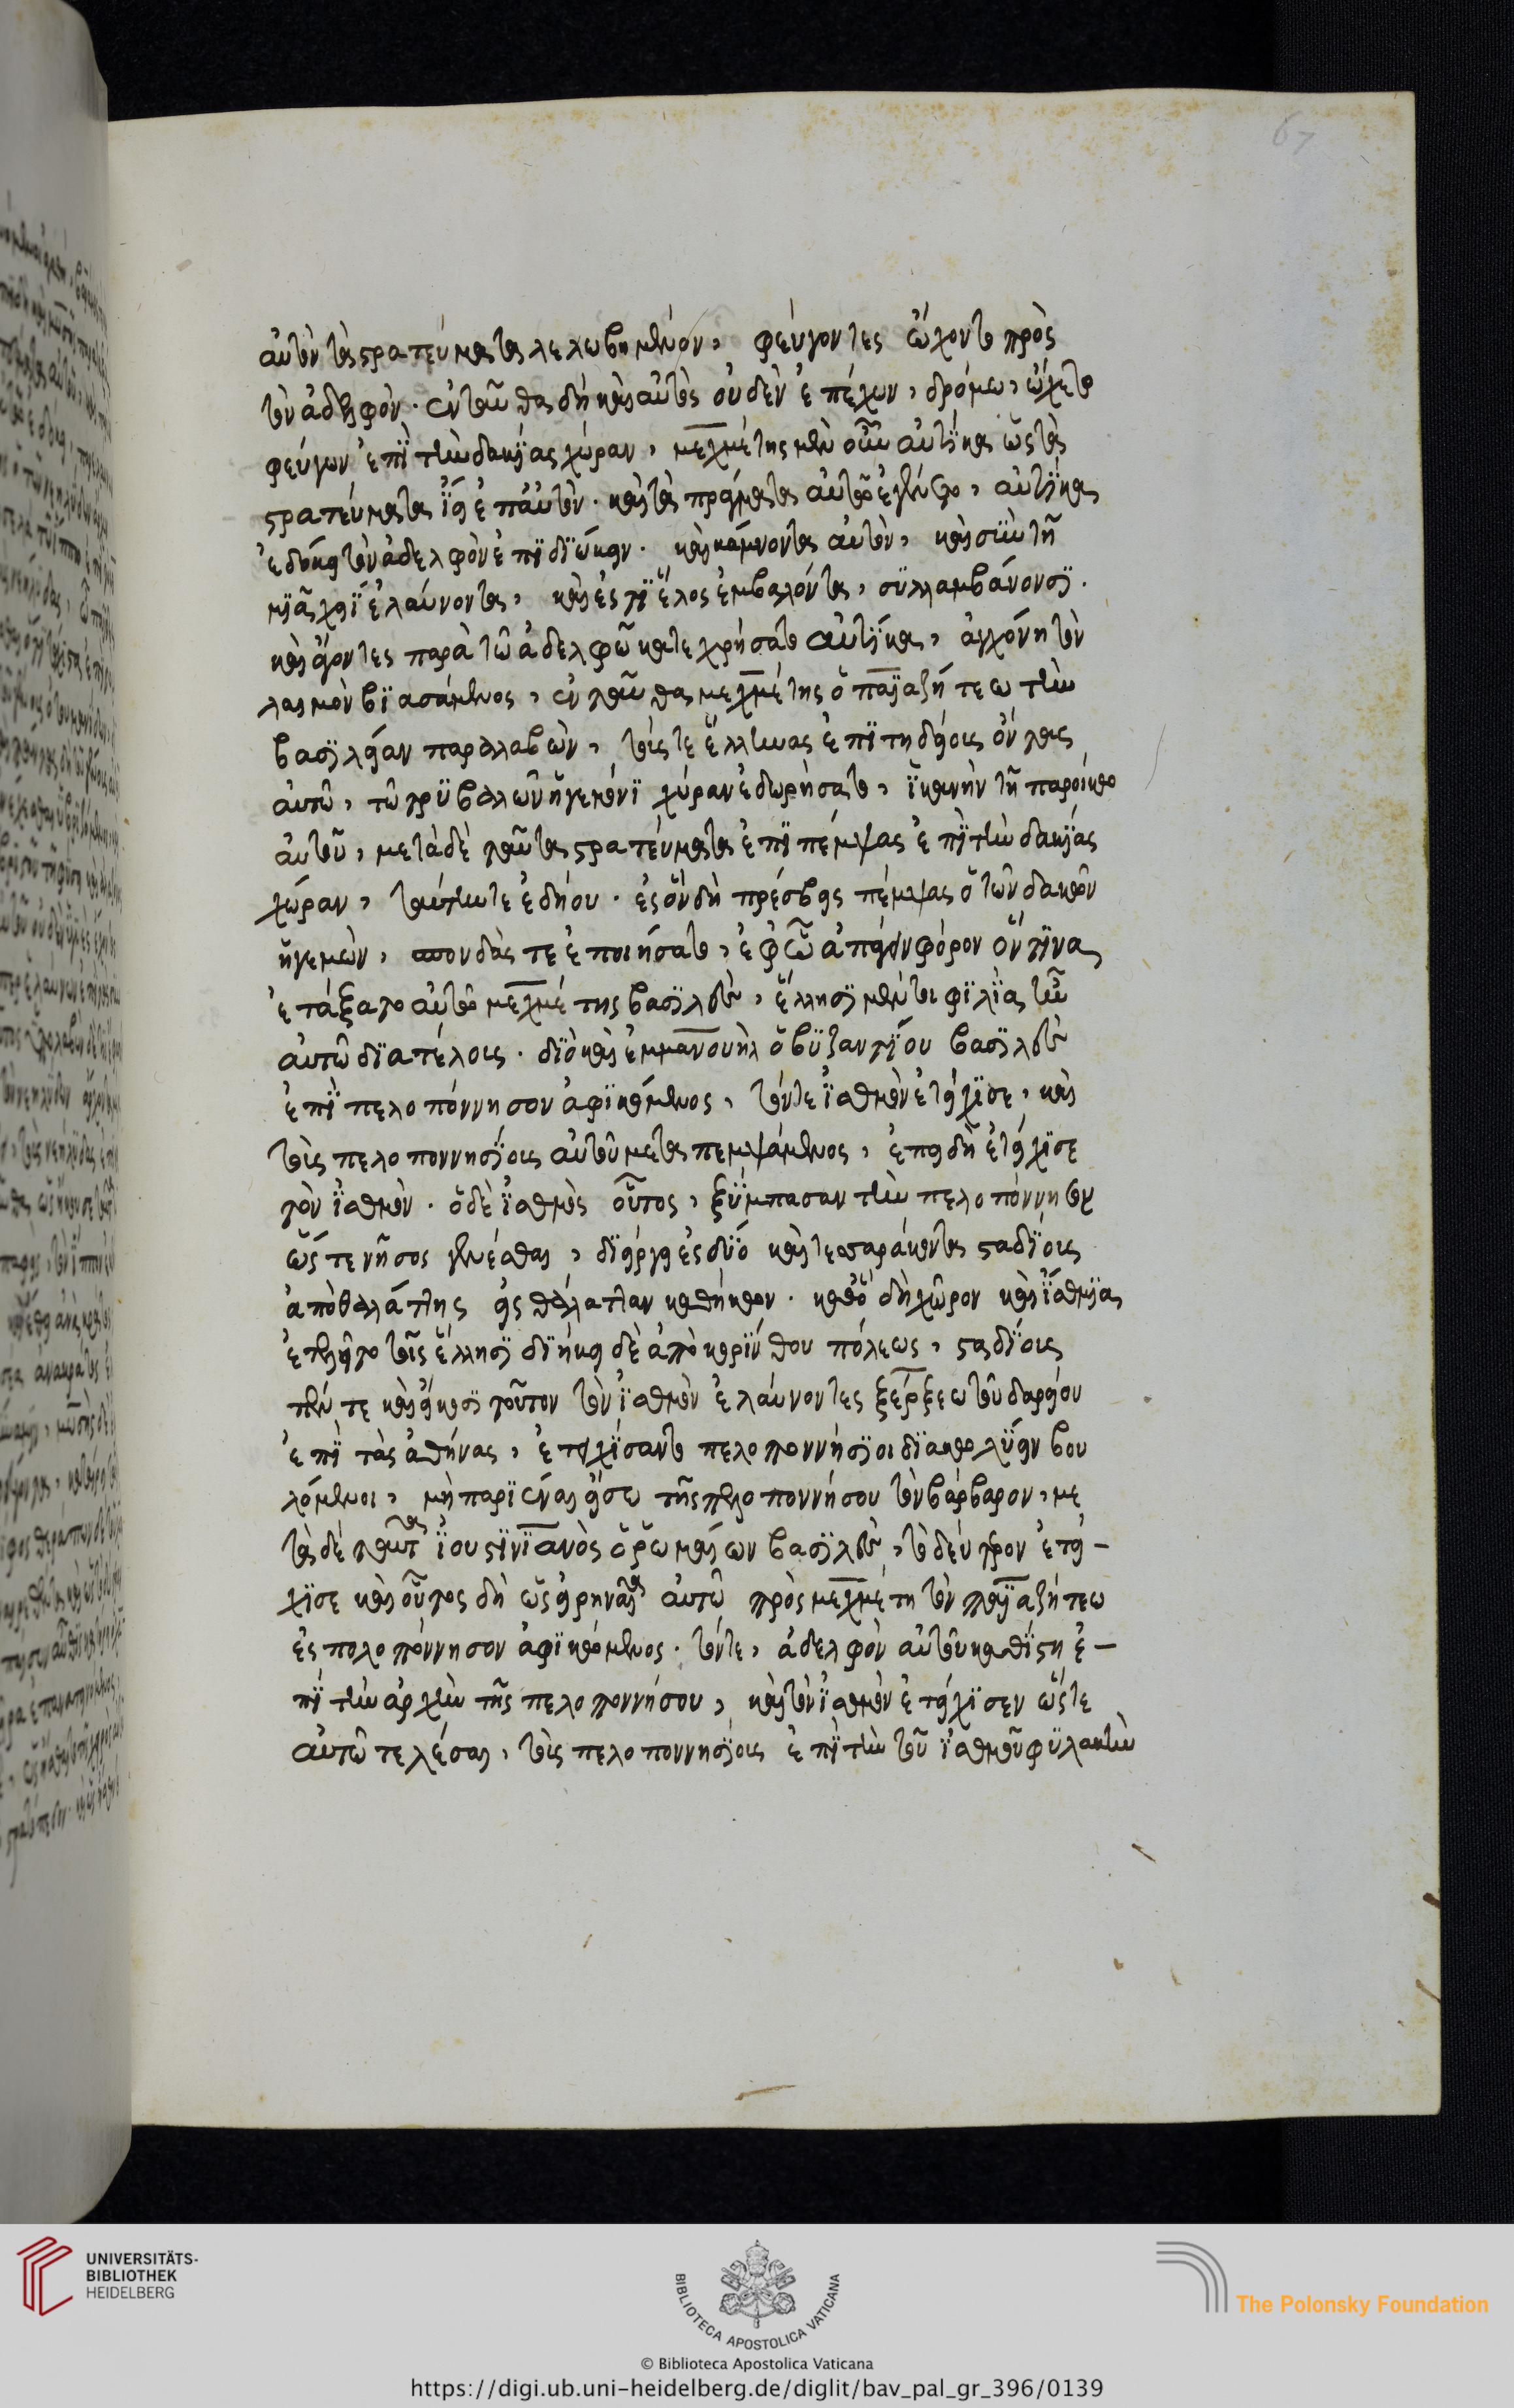 67
αὐτὸν τὰ στρατεύματα λελωβημένον, φεύγοντες ᾤχοντο πρὸς
τὸν ἀδελφόν. ἐνταῦθα δὴ καὶ αὐτὸς οὐδὲν ἐπέχων, δρόμω, ᾤχετο
φεύγων ἐπὶ τὴν δακίας χώραν, μεχμέτης μὲν οὖν αὐτίκα ὡς τὰ
στρατεύματα ἵει ἐπ' αὐτὸν. καὶ τὰ πράγματα αὐτοῦ ἐγένετο, αὐτίκα
ἐδόκει τὸν ἀδελφὸν ἐπιδιώκειν. καὶ κάμνοντα αὐτὸν, καὶ σὺν τῆ
μιᾶ χειὶ ἐλαύνοντα, καὶ ἐς τι ἕλος ἐμβαλόντα, συλλαμβάνουσι.
καὶ ἄγοντες παρὰ τῶ ἀδελφῶ κατεχρήσατο αὐτίκα, ἀγχόνη τὸν
λαιμὸν βιασάμενος, ἐνταῦθα μεχμέτης ὁ παϊαζήτεω τὴν
βασιλείαν παραλαβὼν, τοῖς τε ἕλλησιν ἐπιτηδείοις οὖν τοῖς
αὐτῶ, τῶ τριβαλῶν ἡγεμόνι χώραν ἐδωρήσατο, ἱκανὴν τῆ παροίκω
αὐτοῦ, μετὰ δὲ ταῦτα στρατεύματα ἐπιπέμψας ἐπὶ τὴν δακίας
χώραν, ταύτην τε ἐδήου. ἐς ὃν δὴ πρέσβεις πέμψας ὁ τῶν δακῶν
ἡγεμὼν, σπονδάς τε ἐποιήσατο, ἐφ' ᾧ ἀπάγειν φόρον ὅντινα
ἐτάξατο αὐτῶ μεχμέτης βασιλεὺς, ἕλλησι μέν τοι φιλία ἦν
αὐτῶ διατέλους. διὸ καὶ ἐμμανουὴλ ὁ βυζαντίου βασιλεὺς
ἐπὶ πελοπόννησον ἀφικόμενος, τόν τε ἰσθμὸν ἐτείχισε, καὶ
τοὺς πελοποννησίους αὐτοῦ μεταπεμψάμενος, ἐπειδὴ ἐτείχισε
τὸν ἰσθμὸν. ὁ δὲ ἰσθμὸς οὗτος, ξύμπασαν τὴν πελοπόννησον
ὥς τε νῆσος γενέσθαι, διείργει ἐς δύο καὶ τεσσαράκοντα σταδίους
ἀπὸ θαλάττης εἰς θάλατταν καθῆκον. καθ' ὃ δὴ χῶρον καὶ ἴσθμια
ἐτελεῖτο τοῖς ἕλλησι διήκει δὲ ἀπὸ κορίνθου πόλεως, σταδίους
πέντε καὶ εἴκοσι τοῦτον τὸν ἰσθμὸν ἐλαύνοντες ξέρξεω τοῦ δαρείου
ἐπὶ τὰς ἀθήνας, ἐτειχίσαντο πελοποννήσιοι διακωλύειν βου
λόμενοι, μὴ παριέναι εἴσω τῆς πελοποννήσου τὸν βάρβαρον, με
τὰ δὲ ταῦτα ἰουστινιανὸς ὁ ῥωμαίων βασιλεὺς, τὸ δεύτερον ἐτεί-
χισε καὶ οὗτος δὴ ὡς εἰρηναῖα αὐτῶ πρὸς μεχμέτη τὸν παϊαζήτεω
ἐς πολοπόννησον ἀφικόμενος. τόν τε, ἀδελφὸν αὐτοῦ καθίστη ἐ-
πὶ τὴν ἀρχὴν τῆς πελοποννήσου, καὶ τὸν ἰσθμὸν ἐτείχισεν ὥς τε
αὐτῶ τελέσαι, τοὺς πελοποννησίους ἐπὶ τὴν τοῦ ἰσθμοῦ φυλακὴν
UNIVERSITÄTS-
BIBLIOTHEK
HEIDELBERG
BIBLIOTECA APOSTOLICA VATICANA
The Polonsky Foundation
© Biblioteca Apostolica Vaticana
https://digi.ub.uni-heidelberg.de/diglit/bav_pal_gr_396/0139